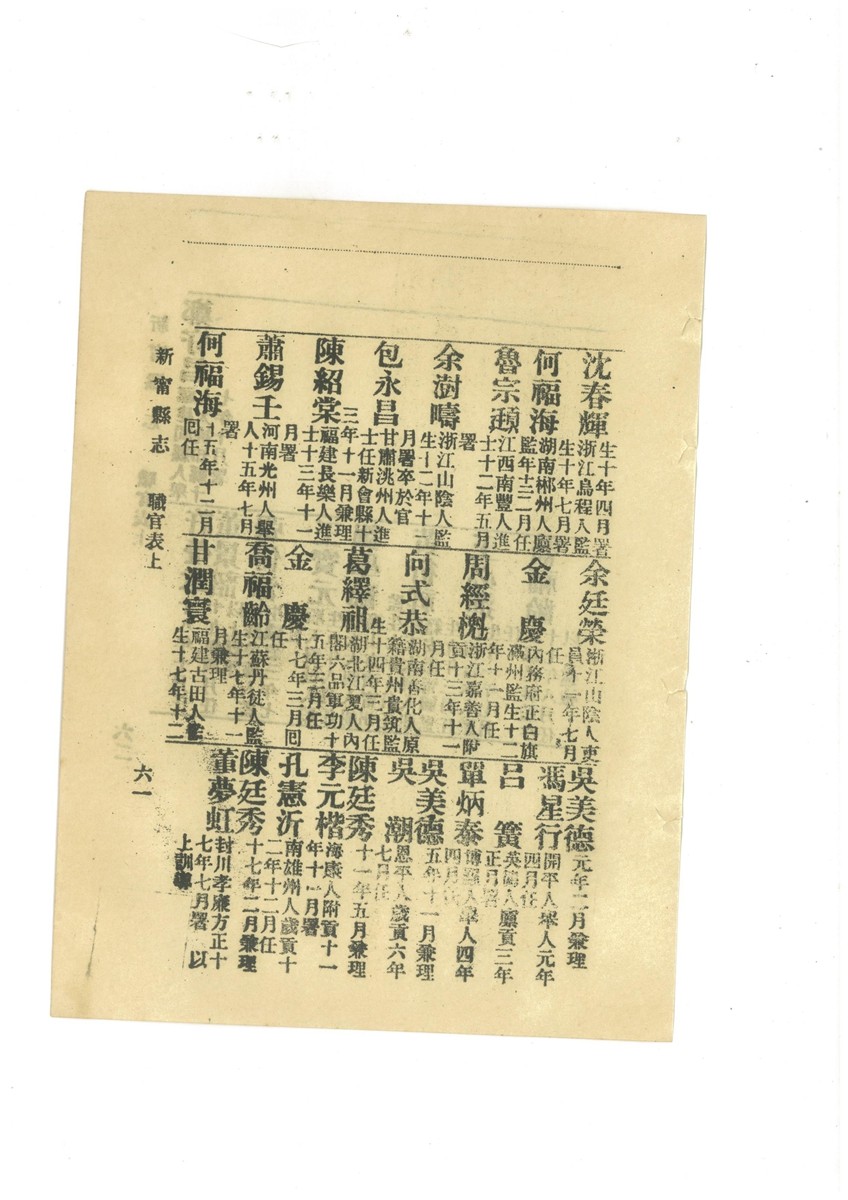 沈春輝 浙江烏程人監生十年四月署
何福海 湖南郴州人廩監年十二月任 生十年七月署
魯宗頲 江西南豐人進士十二年五月署
余澍疇 浙江山陰人監生十二年十一月署卒於官
包永昌 甘肅洮州人進士任新會縣十三年十一月兼理
陳紹棠 福建長樂人進士十三年十一月署
蕭錫壬 河南光州人舉人十五年七月署
何福海 十五年十二月囘任
余廷榮 浙江山陰人吏員十一年七月任
金慶 內務府正白旗滿州監生十二年十一月任
周經 浙江嘉善人附貢十三年十一月任
向式恭 湖南善化人原籍貴州貴筑監生十四年三月任
葛繹祖 湖北江夏人內閣六品軍功十五年三月任
金慶 十七年三月囘任
喬福齡 江蘇丹徒人監生十七年十一月兼理
甘潤寰 福建古田人監生十七年十二
吳美德 元年二月兼理
馮星行 開平人舉人元年四月任
呂簧 英德人廩貢三年正月署
單炳泰 博羅人舉人四年四月
吳美德 五年十一月兼理
吳潮 恩平人歲貢六年七月任
陳廷秀 十一年五月兼理
李元楷 海康人附貢十一年十一月署
孔憲沂 南雄州人歲貢十二年十二月任
陳廷秀 十七年二月兼理
董夢虹 封川孝廉方正十七年七月署 以上訓導
新甯縣志 職官表上 六一